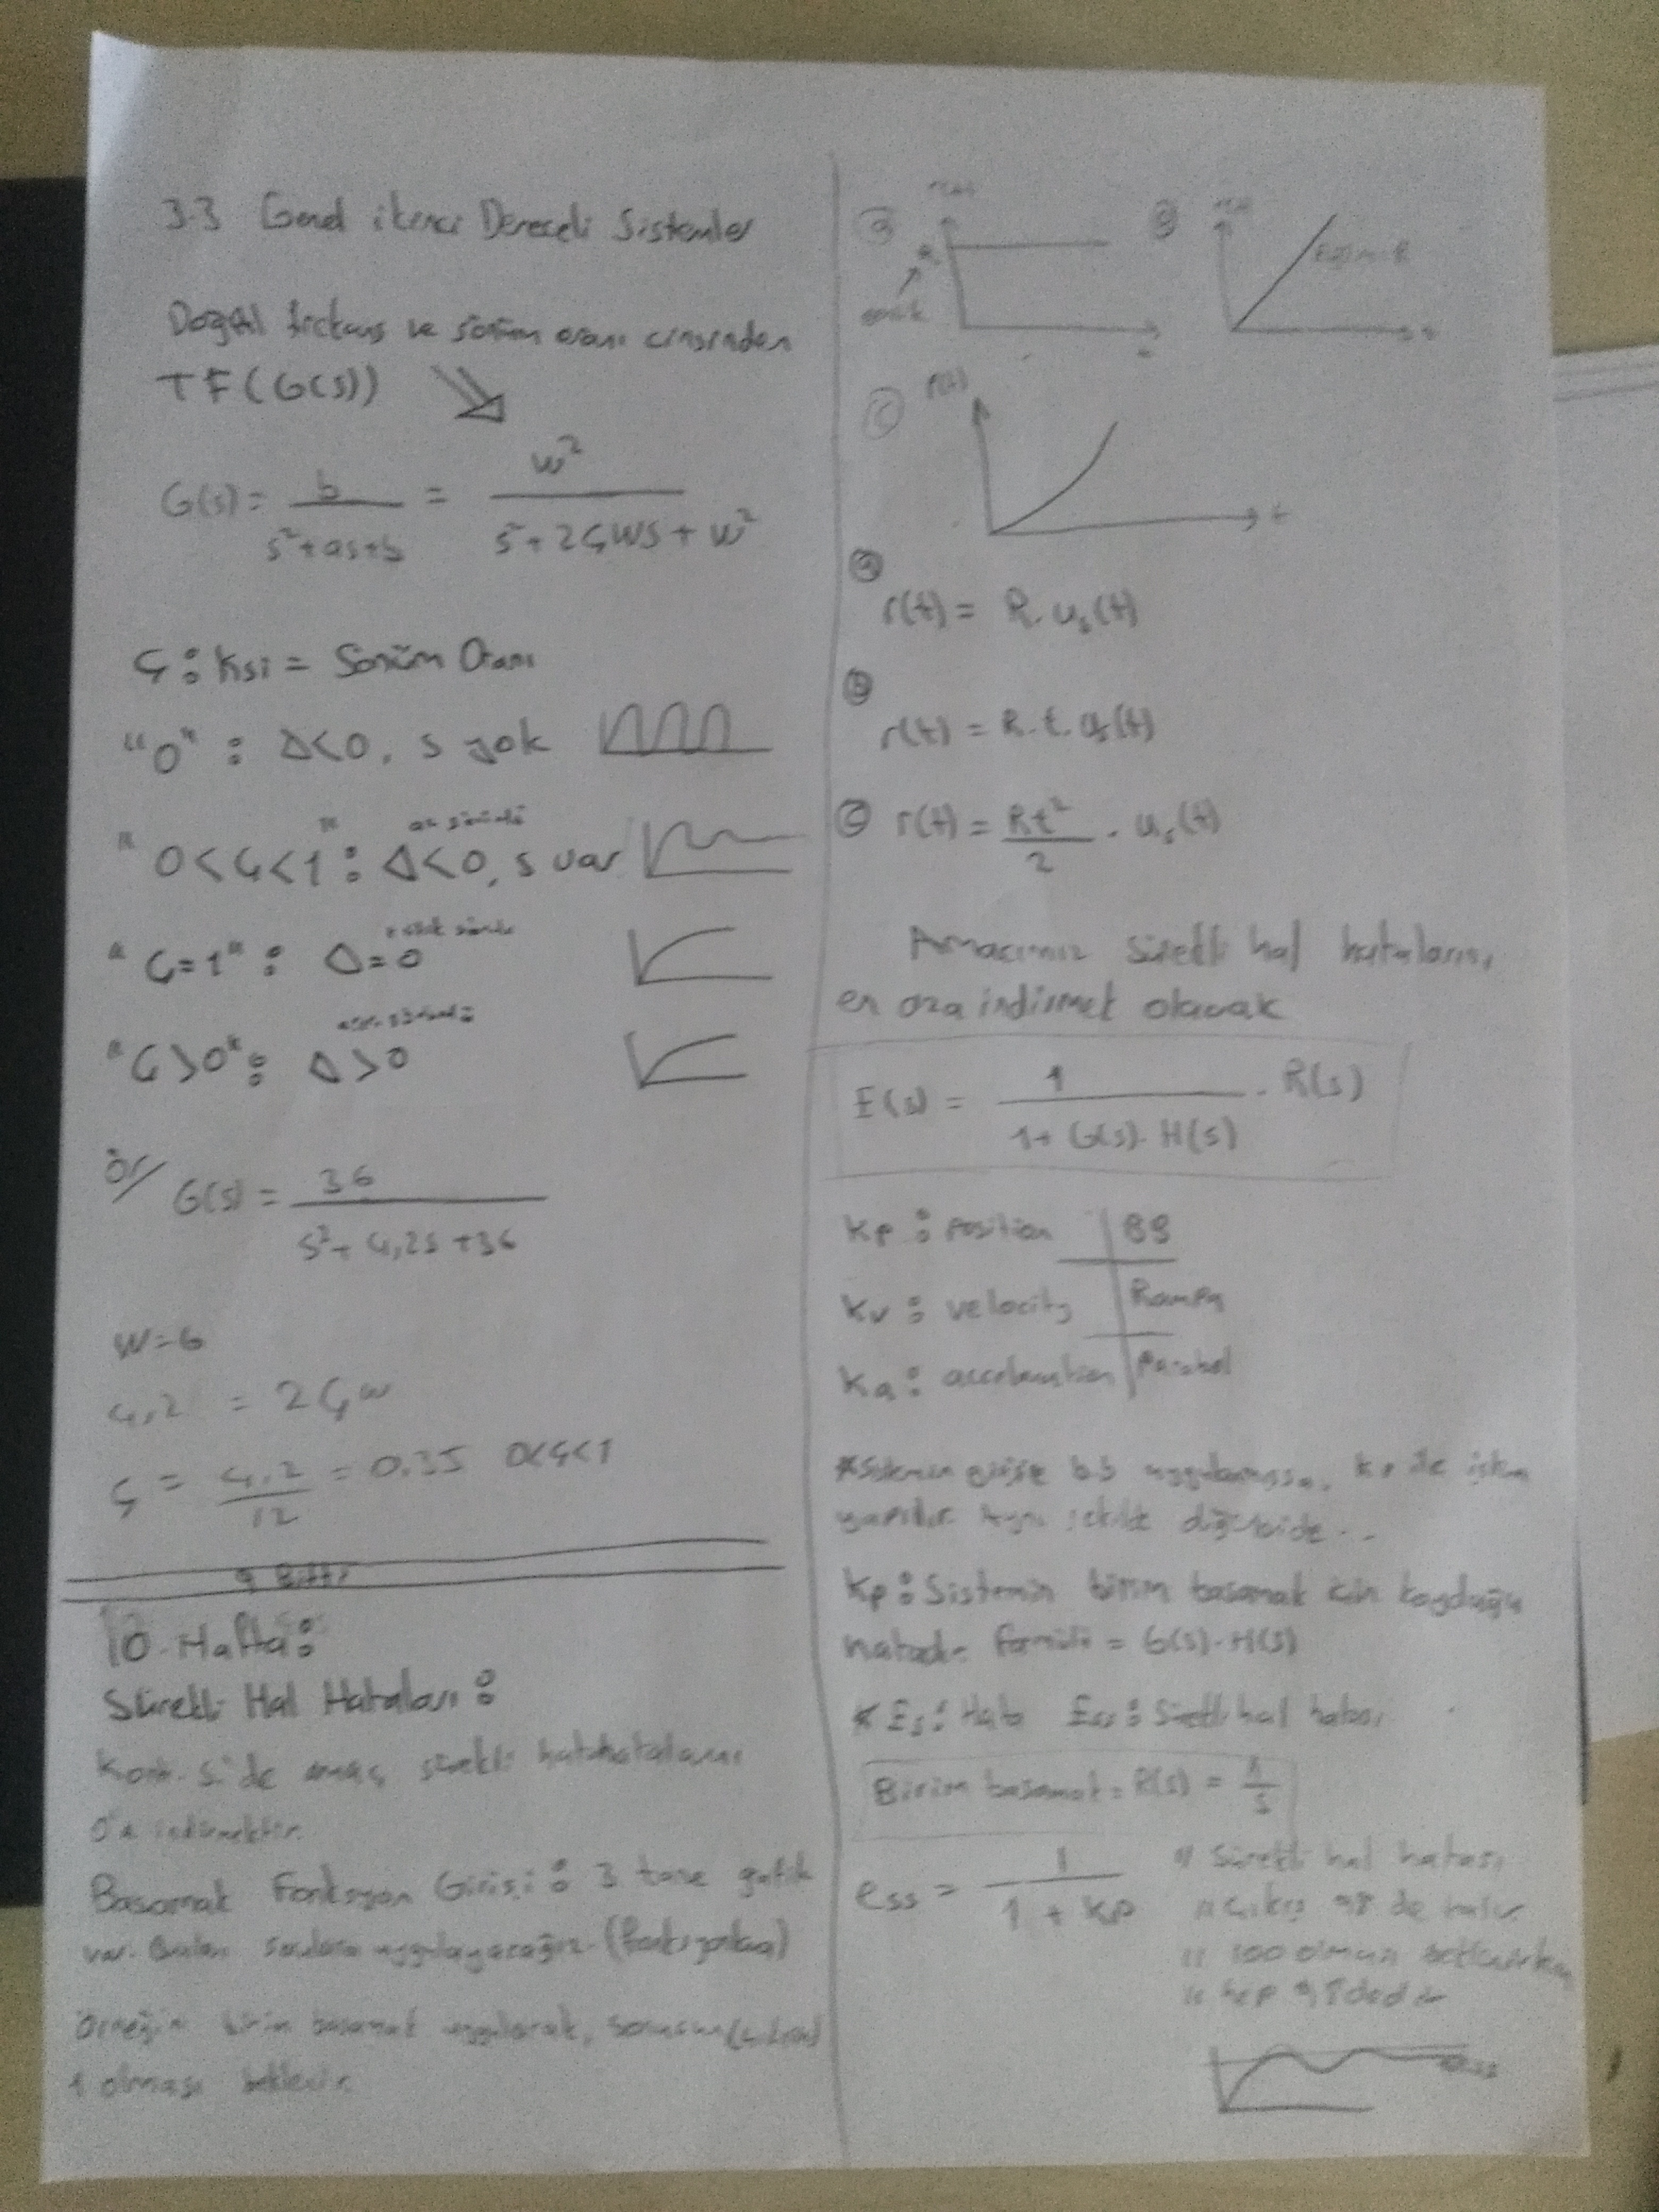 3.3 Genel ikinci Dereceli Sistemler
Doğal frekans ve sönüm oranı cinsinden
TF(G(s))
G(s) = b / s²+as+b = w² / s²+2ςws+w²
ς : Ksi = Sönüm Oranı
"0" : Δ<0, s yok
az sönümlü
"0<ς<1" : Δ<0, s var
"ς=1" : Δ=0
"ς>0" : Δ>0
ör/ G(s) = 36 / s²+4,2s+36
w=6
4,2 = 2ςw
ς = 4,2 / 12 = 0.35 0<ς<1
9 Bitti
10. Hafta:
Sürekli Hal Hataları :
Kont. S.'de amaç, sürekli
0'a indirmektir.
Basamak Fonksiyon Girişi : 3 tane
var. Bunları uygulayacağız.
Örneğin birim basamak
1 olması beklenir.
a r(t)
R
t
b r(t)
t
c r(t)
t
a
r(t) = R.us(t)
b
r(t) = R.t.us(t)
c r(t) = Rt² / 2 . us(t)
Amacımız sürekli hal hatalarını
en aza indirmek olacak
E(s) = 1 / 1+G(s).H(s) . R(s)
Kp : Position | BB
Kv : velocity | Rampa
Ka : acceleration | Parabol
*Sistemin girişe b.b uygulanmışsa, Kp ile işlem
yapılır. Aynı şekilde
Kp : Sistemin birim basamak için koyduğu
hatadır formülü = G(s).H(s)
* Es : Hata Ess : Sürekli hal hatası
Birim basamak = R(s) = 1 / s
ess = 1 / 1+Kp
" Sürekli hal hatası
" çıkış 98 de kalır.
" 100 olması beklenirken
" hep 98dedir
ess